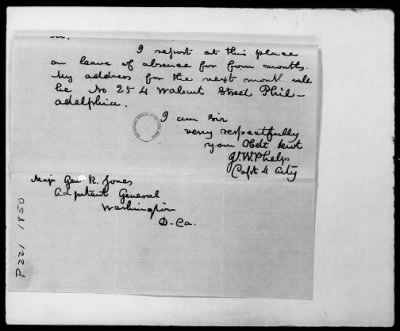 Sir.
I report at this place
on leave of absence for four months.
My address for the next month will
be No 254 Walnut Street Phil-
adelphia.
I am sir
very respectfully
your Obdt Servt
J. W. Phelps
Capt 4 Arty
Major Gen R. Jones
Adjutant General
Washington
D. Ca.
P 221 1850